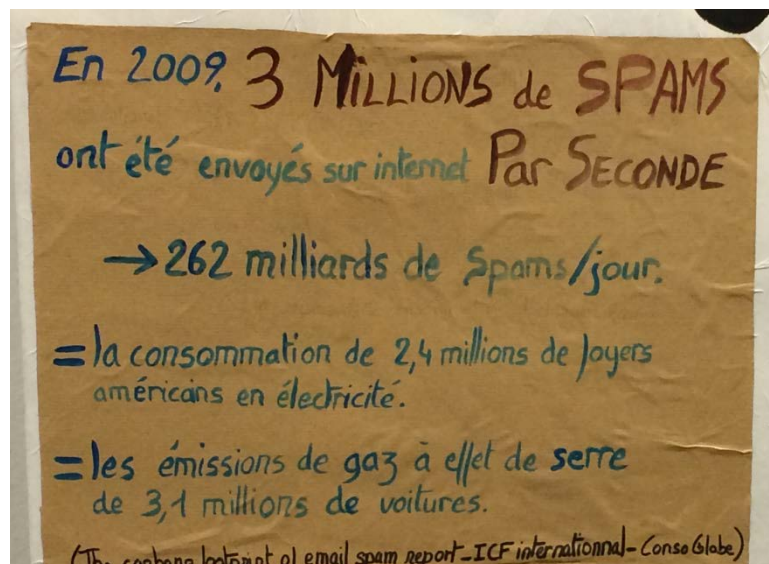 En 2009, 3 MiLLiONS de SPAMS
ont été envoyés sur internet Par SECONDE
→ 262 milliards de Spams/jour.
= la consommation de 2,4 millions de foyers
américains en électricité.
= les émissions de gaz à effet de serre
de 3,1 millions de voitures.
(The carbone footprint of email spam report - ICF internationnal - Conso Globe)